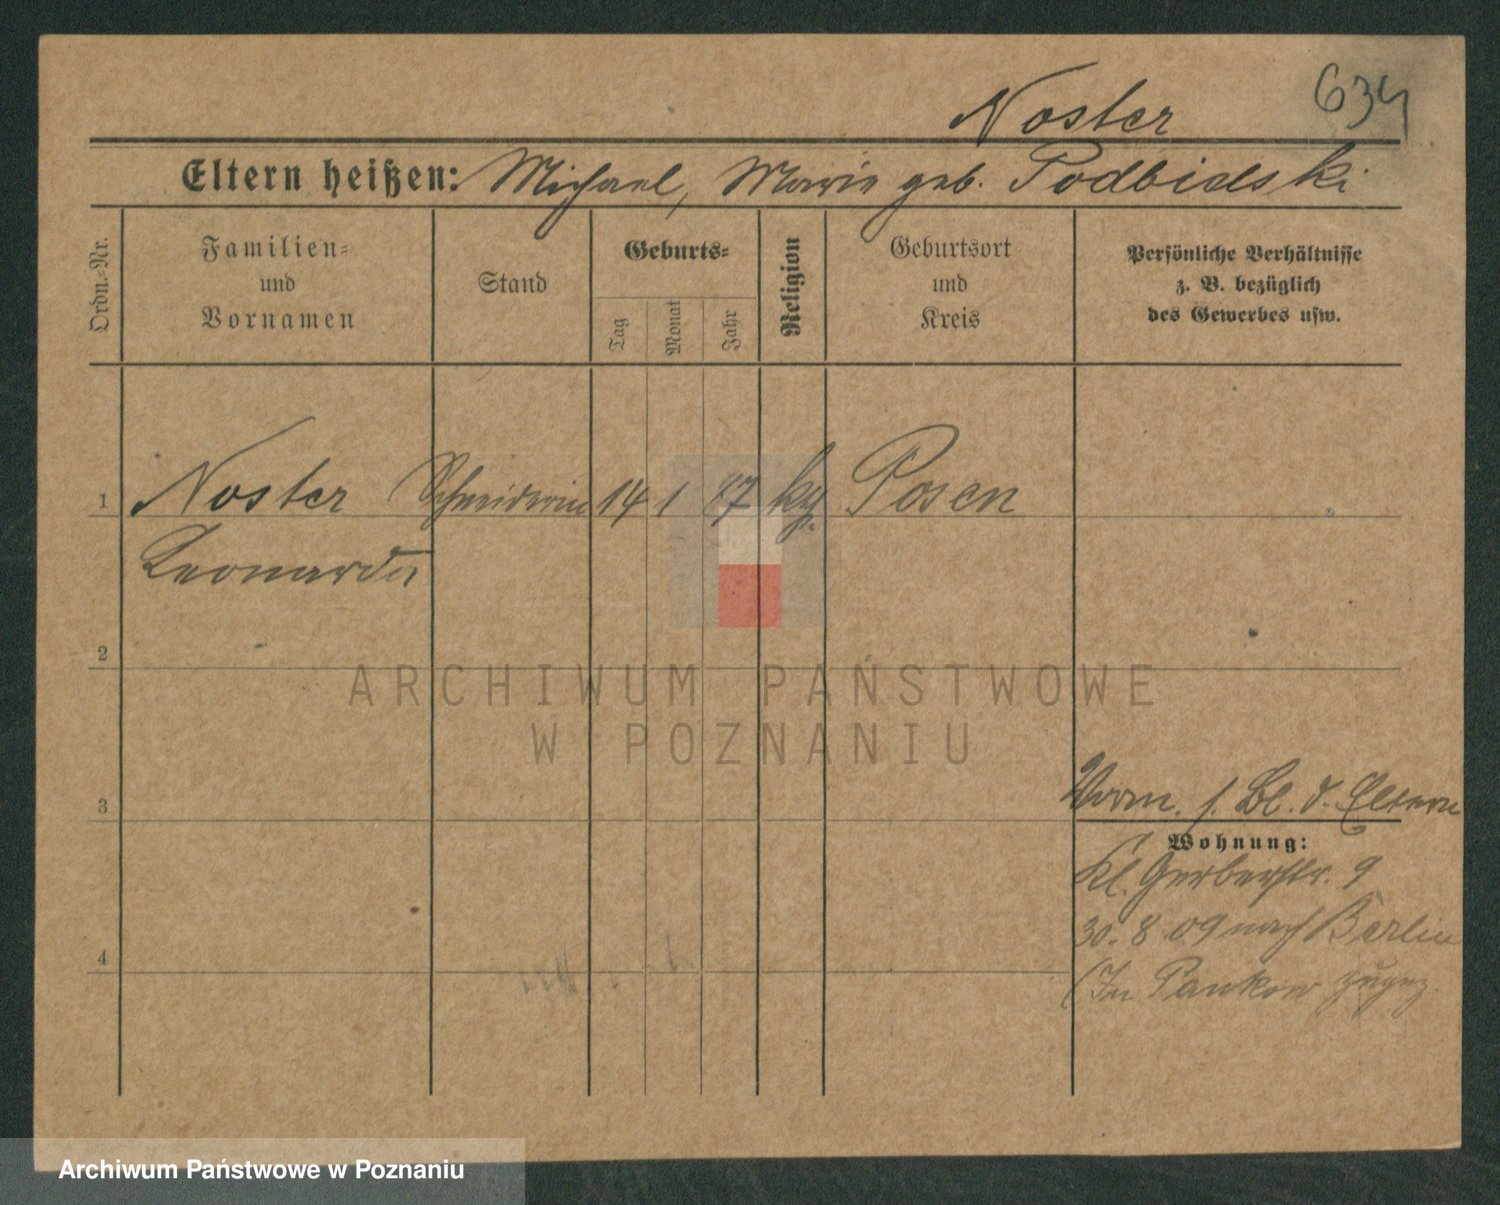 634
Noster
Eltern heißen: Michael, Marie geb. Podbielski
Ordn.-Nr.
Familien- und Vornamen
Stand
Geburts-
Tag
Monat
Jahr
Religion
Geburtsort und Kreis
Persönliche Verhältnisse z. B. bezüglich des Gewerbes usw.
1 Noster Schneiderin 14 1 87 kath. Posen
Leonarda
2
ARCHIWUM PAŃSTWOWE
W POZNANIU
Vorm. s. Bl. d. Eltern
3
Wohnung:
Kl. Gerberstr. 9
30. 8. 09 nach Berlin
4
(In Pankow zugez.
Archiwum Państwowe w Poznaniu